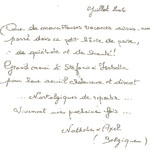 Juillet 2006
Que de merveilleuses vacances nous avons
passé dans ce petit Havre de paix,
de quiétude et de beauté!
Grand merci à Stefano & Isabelle
pour leur accueil chaleureux et discret
... Nostalgiques de repartir ...
Vivement une prochaine fois ...
Nathalie & Axel
(Belgique)